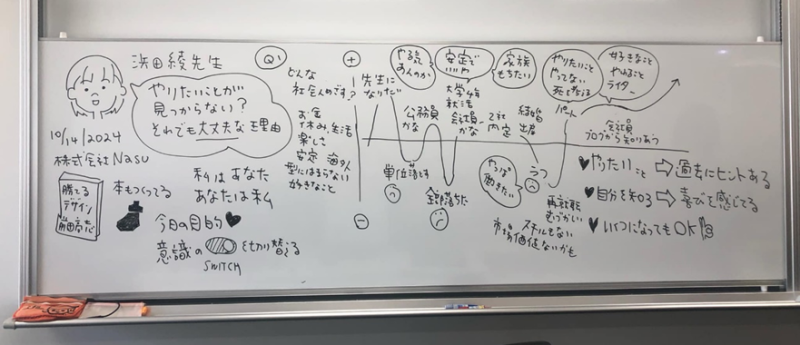 浜田綾先生
やりたいことが
見つからない?
それでも大丈夫な理由
10/14/2024
株式会社Nasu
勝てる
デザイン
前田高志
本もつくってる
私はあなた
あなたは私
今日の目的
意識の
をきり替える
SWITCH
Q1
どんな
社会人めざす?
お金
休み、生活
楽しさ
安定 海外
型にはまらない
好きなこと
+
-
先生に
なりたい
やる気
あんのか
公務員
かな
単位落とす
安定で
いいや
大学4年
就活
会社員
かな
全部落ちた
家族
もちたい
2社
内定
やっぱ
働きたい
結婚
出産
うつ
再就職
むずかしい
スキルもない
市場価値ないかも
やりたいこと
やってない
死ねなる
パート
好きなこと
やれること
ライター
会社員
ブログから知りあう
やりたいこと ⇨ 過去にヒントある
自分を知る ⇨ 喜びを感じてる
いつになってもOK